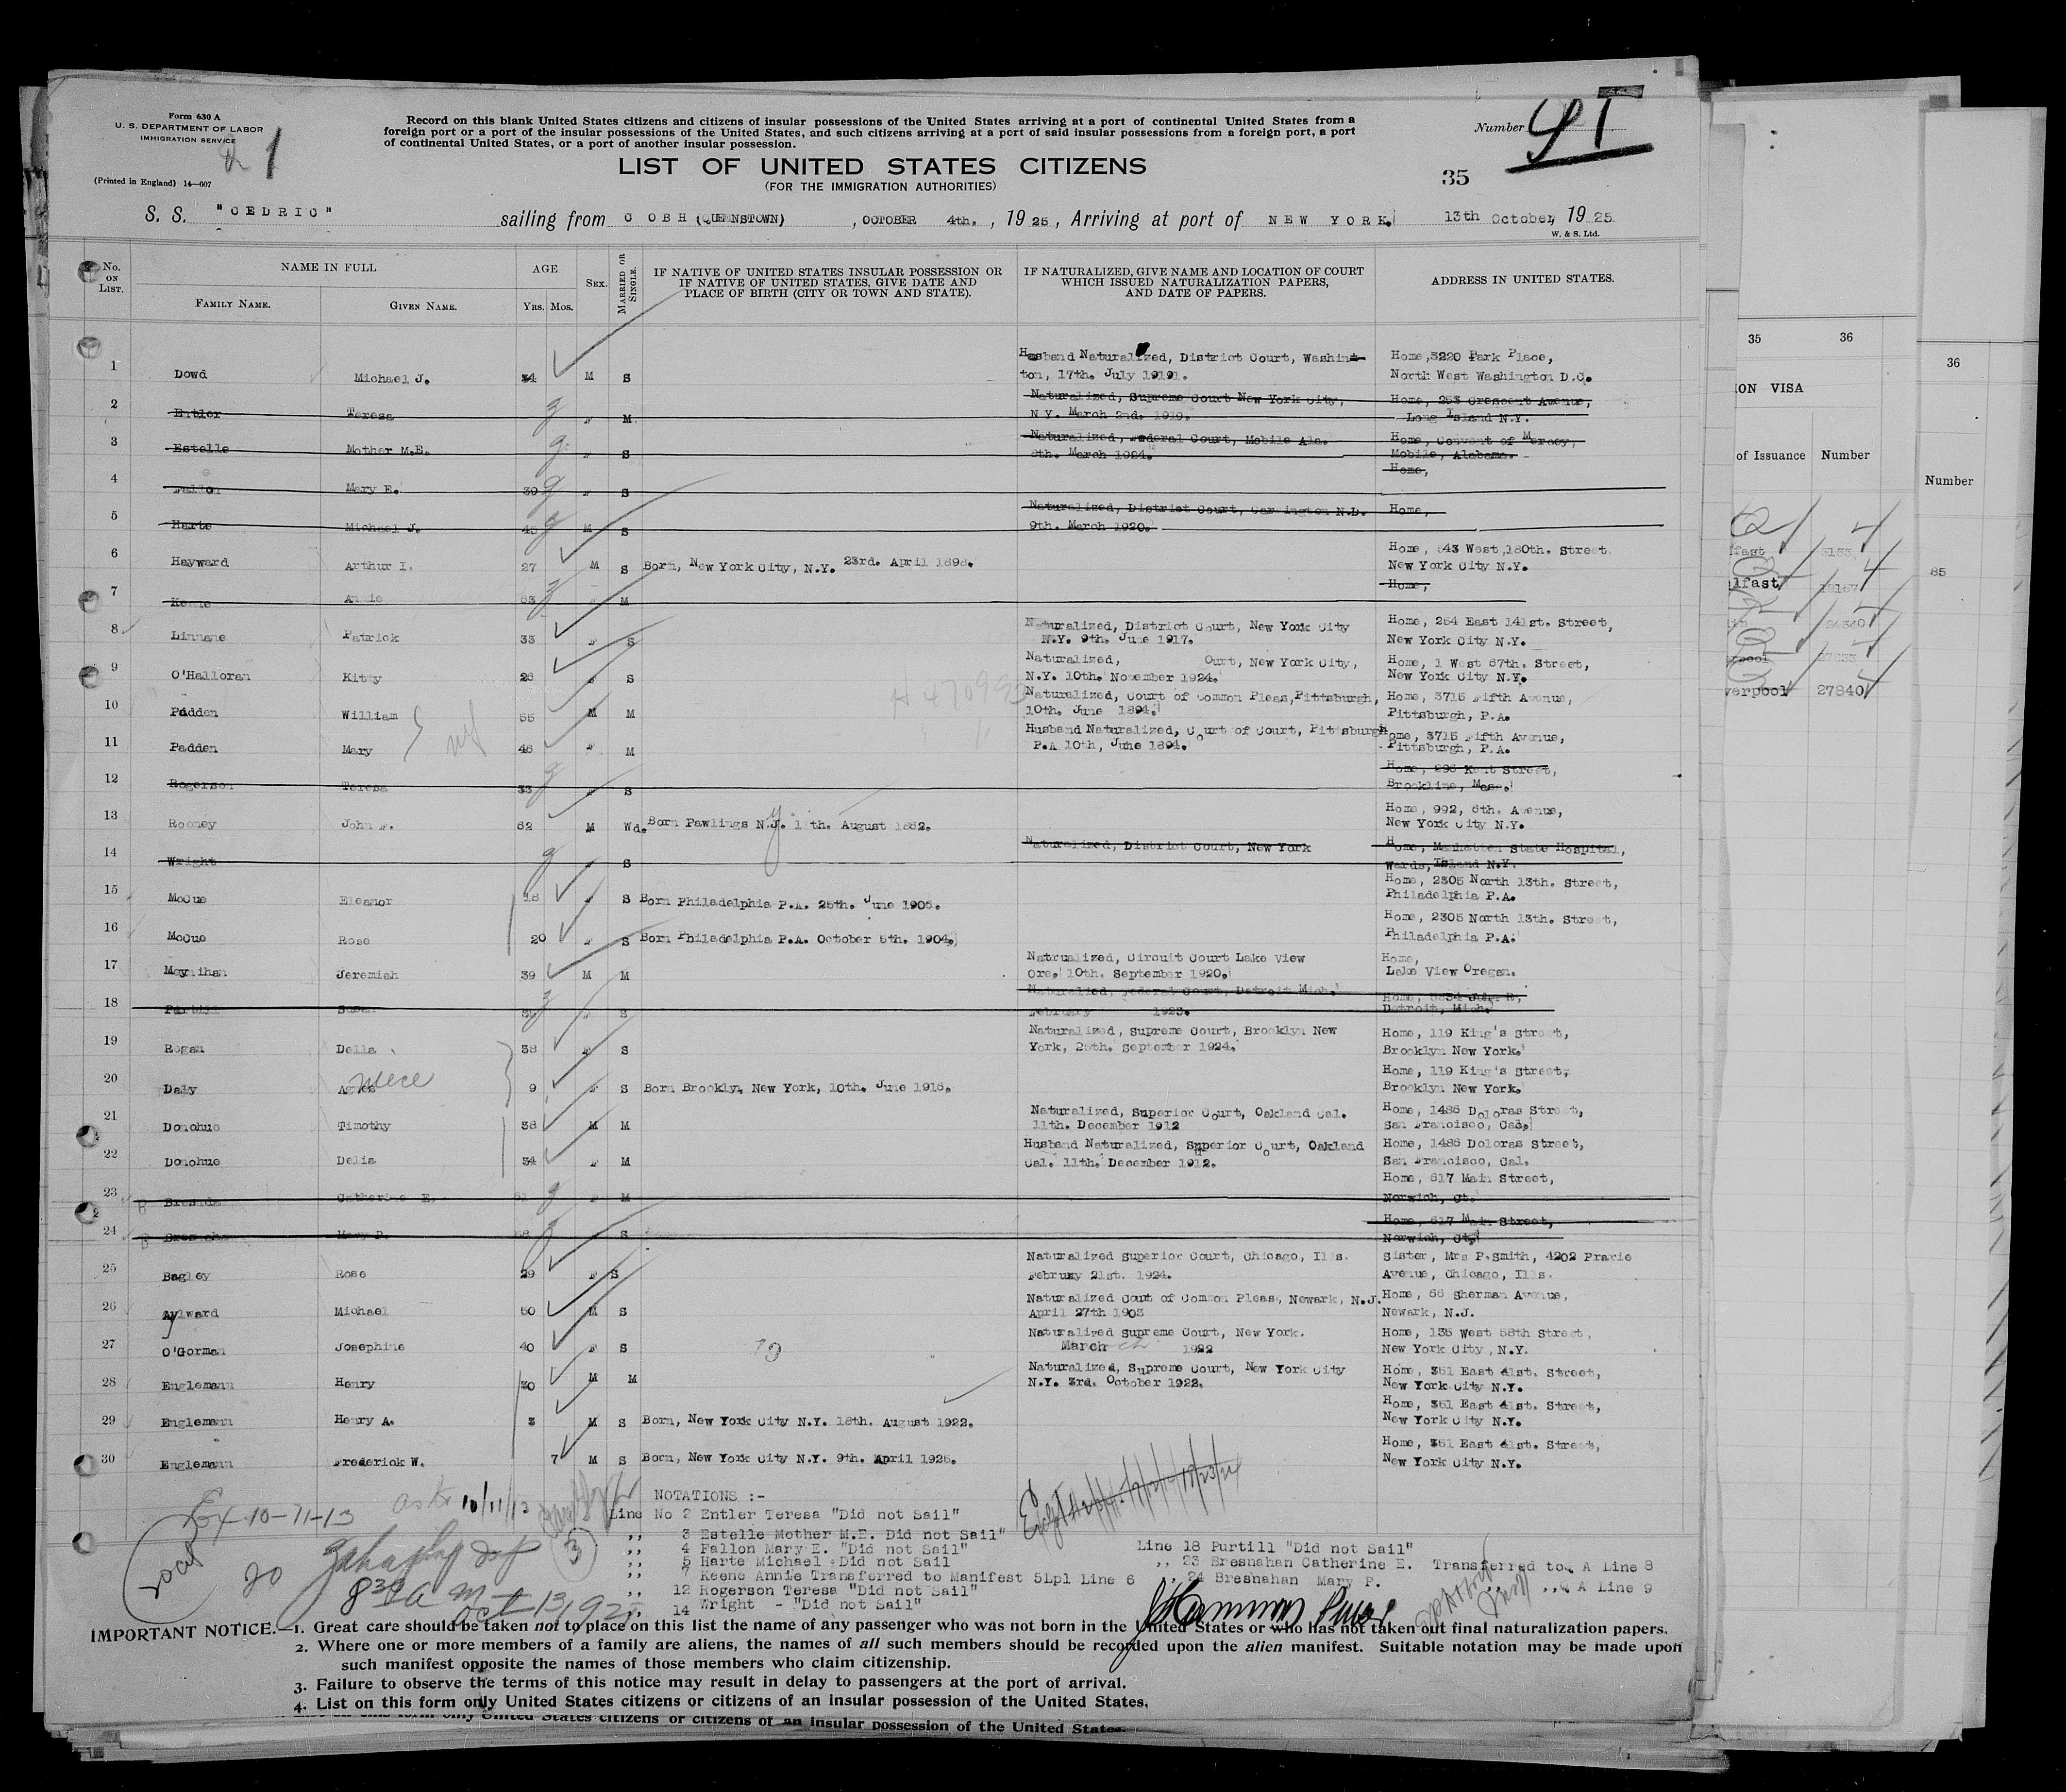 Form 630 A
U. S. DEPARTMENT OF LABOR
IMMIGRATION SERVICE
(Printed in England) 14—607
Record on this blank United States citizens and citizens of insular possessions of the United States arriving at a port of continental United States from a
foreign port or a port of the insular possessions of the United States, and such citizens arriving at a port of said insular possessions from a foreign port, a port
of continental United States, or a port of another insular possession.
Number
LIST OF UNITED STATES CITIZENS
(FOR THE IMMIGRATION AUTHORITIES)
35
S. S. "CEDRIC" sailing from COBH (QUEENSTOWN), OCTOBER 4th., 1925, Arriving at port of NEW YORK. 13th October, 1925.
W. & S. Ltd.
No. ON LIST. NAME IN FULL AGE SEX. MARRIED OR SINGLE. IF NATIVE OF UNITED STATES INSULAR POSSESSION OR IF NATIVE OF UNITED STATES, GIVE DATE AND PLACE OF BIRTH (CITY OR TOWN AND STATE). IF NATURALIZED, GIVE NAME AND LOCATION OF COURT WHICH ISSUED NATURALIZATION PAPERS, AND DATE OF PAPERS. ADDRESS IN UNITED STATES.
FAMILY NAME. GIVEN NAME. YRS. MOS.
1 Dowd Michael J. 34 M S Husband Naturalized, District Court, Washint- Home, 3220 Park Place,
ton, 17th. July 1919. North West Washington D.C.
2 Entler Teresa F M Naturalized, Supreme Court New York City, Home, 253 Crescent Avenue,
N.Y. March 2nd. 1919. Long Island N.Y.
3 Estelle Mother M.E. F S Naturalized, Federal Court, Mobile Ala. Home, Convent of Mercy,
8th. March 1924. Mobile, Alabama.
4 Fallon Mary E. 39 F S Home,
5 Harte Michael J. 45 M S Naturalized, District Court, Carrington N.D. Home,
9th. March 1920.
6 Hayward Arthur I. 27 M S Born, New York City, N.Y. 23rd. April 1898. Home, 543 West, 180th. Street
New York City N.Y.
7 Keene Annie 63 F M Home,
8 Linnane Patrick 33 F S Naturalized, District Court, New York City Home, 254 East 141st. Street,
N.Y. 9th. June 1917. New York City N.Y.
9 O'Halloran Kitty 26 F S Naturalized, Ourt, New York City, Home, 1 West 67th. Street,
N.Y. 10th. November 1924. New York City N.Y.
10 Padden William 55 M M Naturalized, Court of Common Pleas, Pittsburgh, Home, 3715 Fifth Avenue,
10th. June 1894. Pittsburgh, P.A.
11 Padden Mary 46 F M Husband Naturalized, Court of Court, Pittsburgh Home, 3715 Fifth Avenue,
P.A 10th, June 1894. Pittsburgh, P.A.
12 Rogerson Teresa 33 F S Home, 298 Kent Street,
Brookline, Mass.
13 Rooney John F. 62 M Wd. Born Pawlings N.J. August 1862. Home, 992, 6th. Avenue,
New York City N.Y.
14 Wright F S Naturalized, District Court, New York Home, Manhattan State Hospital,
Wards, Island N.Y.
15 McCue Eleanor 18 F S Born Philadelphia P.A. 25th. June 1906. Home, 2305 North 13th. Street,
Philadelphia P.A.
16 McCue Rose 20 F S Born Philadelphia P.A. October 5th. 1904. Home, 2305 North 13th. Street,
Philadelphia P.A.
17 Moynihan Jeremiah 39 M M Natrualized, Circuit Court Lake View Home,
Ore. 10th. September 1920. Lake View Oregan.
18 Purtill Susan F S Naturalied, Federal Court, Detroit Mich. Home, John R,
February 1923. Detroit, Mich.
19 Rogan Della 38 F S Naturalized, Supreme Court, Brooklyn New Home, 119 King's Street,
York, 25th. September 1924. Brooklyn New York.
20 Daly Agnes niece 9 F S Born Brooklyn, New York, 10th. June 1916. Home, 119 King's Street,
Brooklyn New York.
21 Donohue Timothy 38 M M Naturalized, Superior Court, Oakland Cal. Home, 1486 Doloras Street,
11th. December 1912 San Francisco, Cal.
22 Donohue Delia 34 F M Husband Naturalized, Superior Court, Oakland Home, 1486 Doloras Street,
Cal. 11th. December 1912. San Francisco, Cal.
23 Bresnahan Catherine E. F M Home, 617 Main Street,
Norwich, Ct.
24 Bresnahan Mary P. S Home, 617 Main Street,
Norwich, Ct.
25 Bagley Rose 29 F S Naturalized Superior Court, Chicago, Ills. Sister, Mrs P.Smith, 4202 Prarie
Februay 21st. 1924. Avenue, Chicago, Ills.
26 Aylward Michael 50 M S Naturalized Cout of Common Pleas, Newark, N.J. Home, 66 Sherman Avenue,
April 27th 1903 Newark, N.J.
27 O'Gorman Josephine 40 F S Naturalized Supreme Court, New York. Home, 136 West 58th Street,
March 1922 New York City, N.Y.
28 Englemann Henry 30 M M Naturalized, Supreme Court, New York City Home, 351 East 41st. Street,
N.Y. 3rd. October 1922. New York City N.Y.
29 Englemann Henry A. 3 M S Born, New York City N.Y. 18th. August 1922. Home, 351 East 41st. Street,
New York City N.Y.
30 Englemann Frederick W. 7 M S Born, New York City N.Y. 9th. April 1925. Home, 351 East 41st. Street,
New York City N.Y.
NOTATIONS :-
Line No 2 Entler Teresa "Did not Sail"
,, 3 Estelle Mother M.E. Did not Sail"
,, 4 Fallon Mary E. "Did not Sail"
,, 5 Harte Michael Did not Sail
,, 7 Keene Annie Transferred to Manifest 5Lpl Line 6
,, 12 Rogerson Teresa "Did not Sail"
,, 14 Wright - "Did not Sail"
Line 18 Purtill "Did not Sail"
,, 23 Bresnahan Catherine E. Transferred to A Line 8
,, 24 Bresnahan Mary P. ,, ,, A Line 9
20
8 30 A m
Oct 13, 1925
IMPORTANT NOTICE.—1. Great care should be taken not to place on this list the name of any passenger who was not born in the United States or who has not taken out final naturalization papers.
2. Where one or more members of a family are aliens, the names of all such members should be recorded upon the alien manifest. Suitable notation may be made upon
such manifest opposite the names of those members who claim citizenship.
3. Failure to observe the terms of this notice may result in delay to passengers at the port of arrival.
4. List on this form only United States citizens or citizens of an insular possession of the United States.
citizens or citizens of an insular possession of the United States.
35 36
ION VISA
of Issuance Number
verpool 27840
36
Number
85